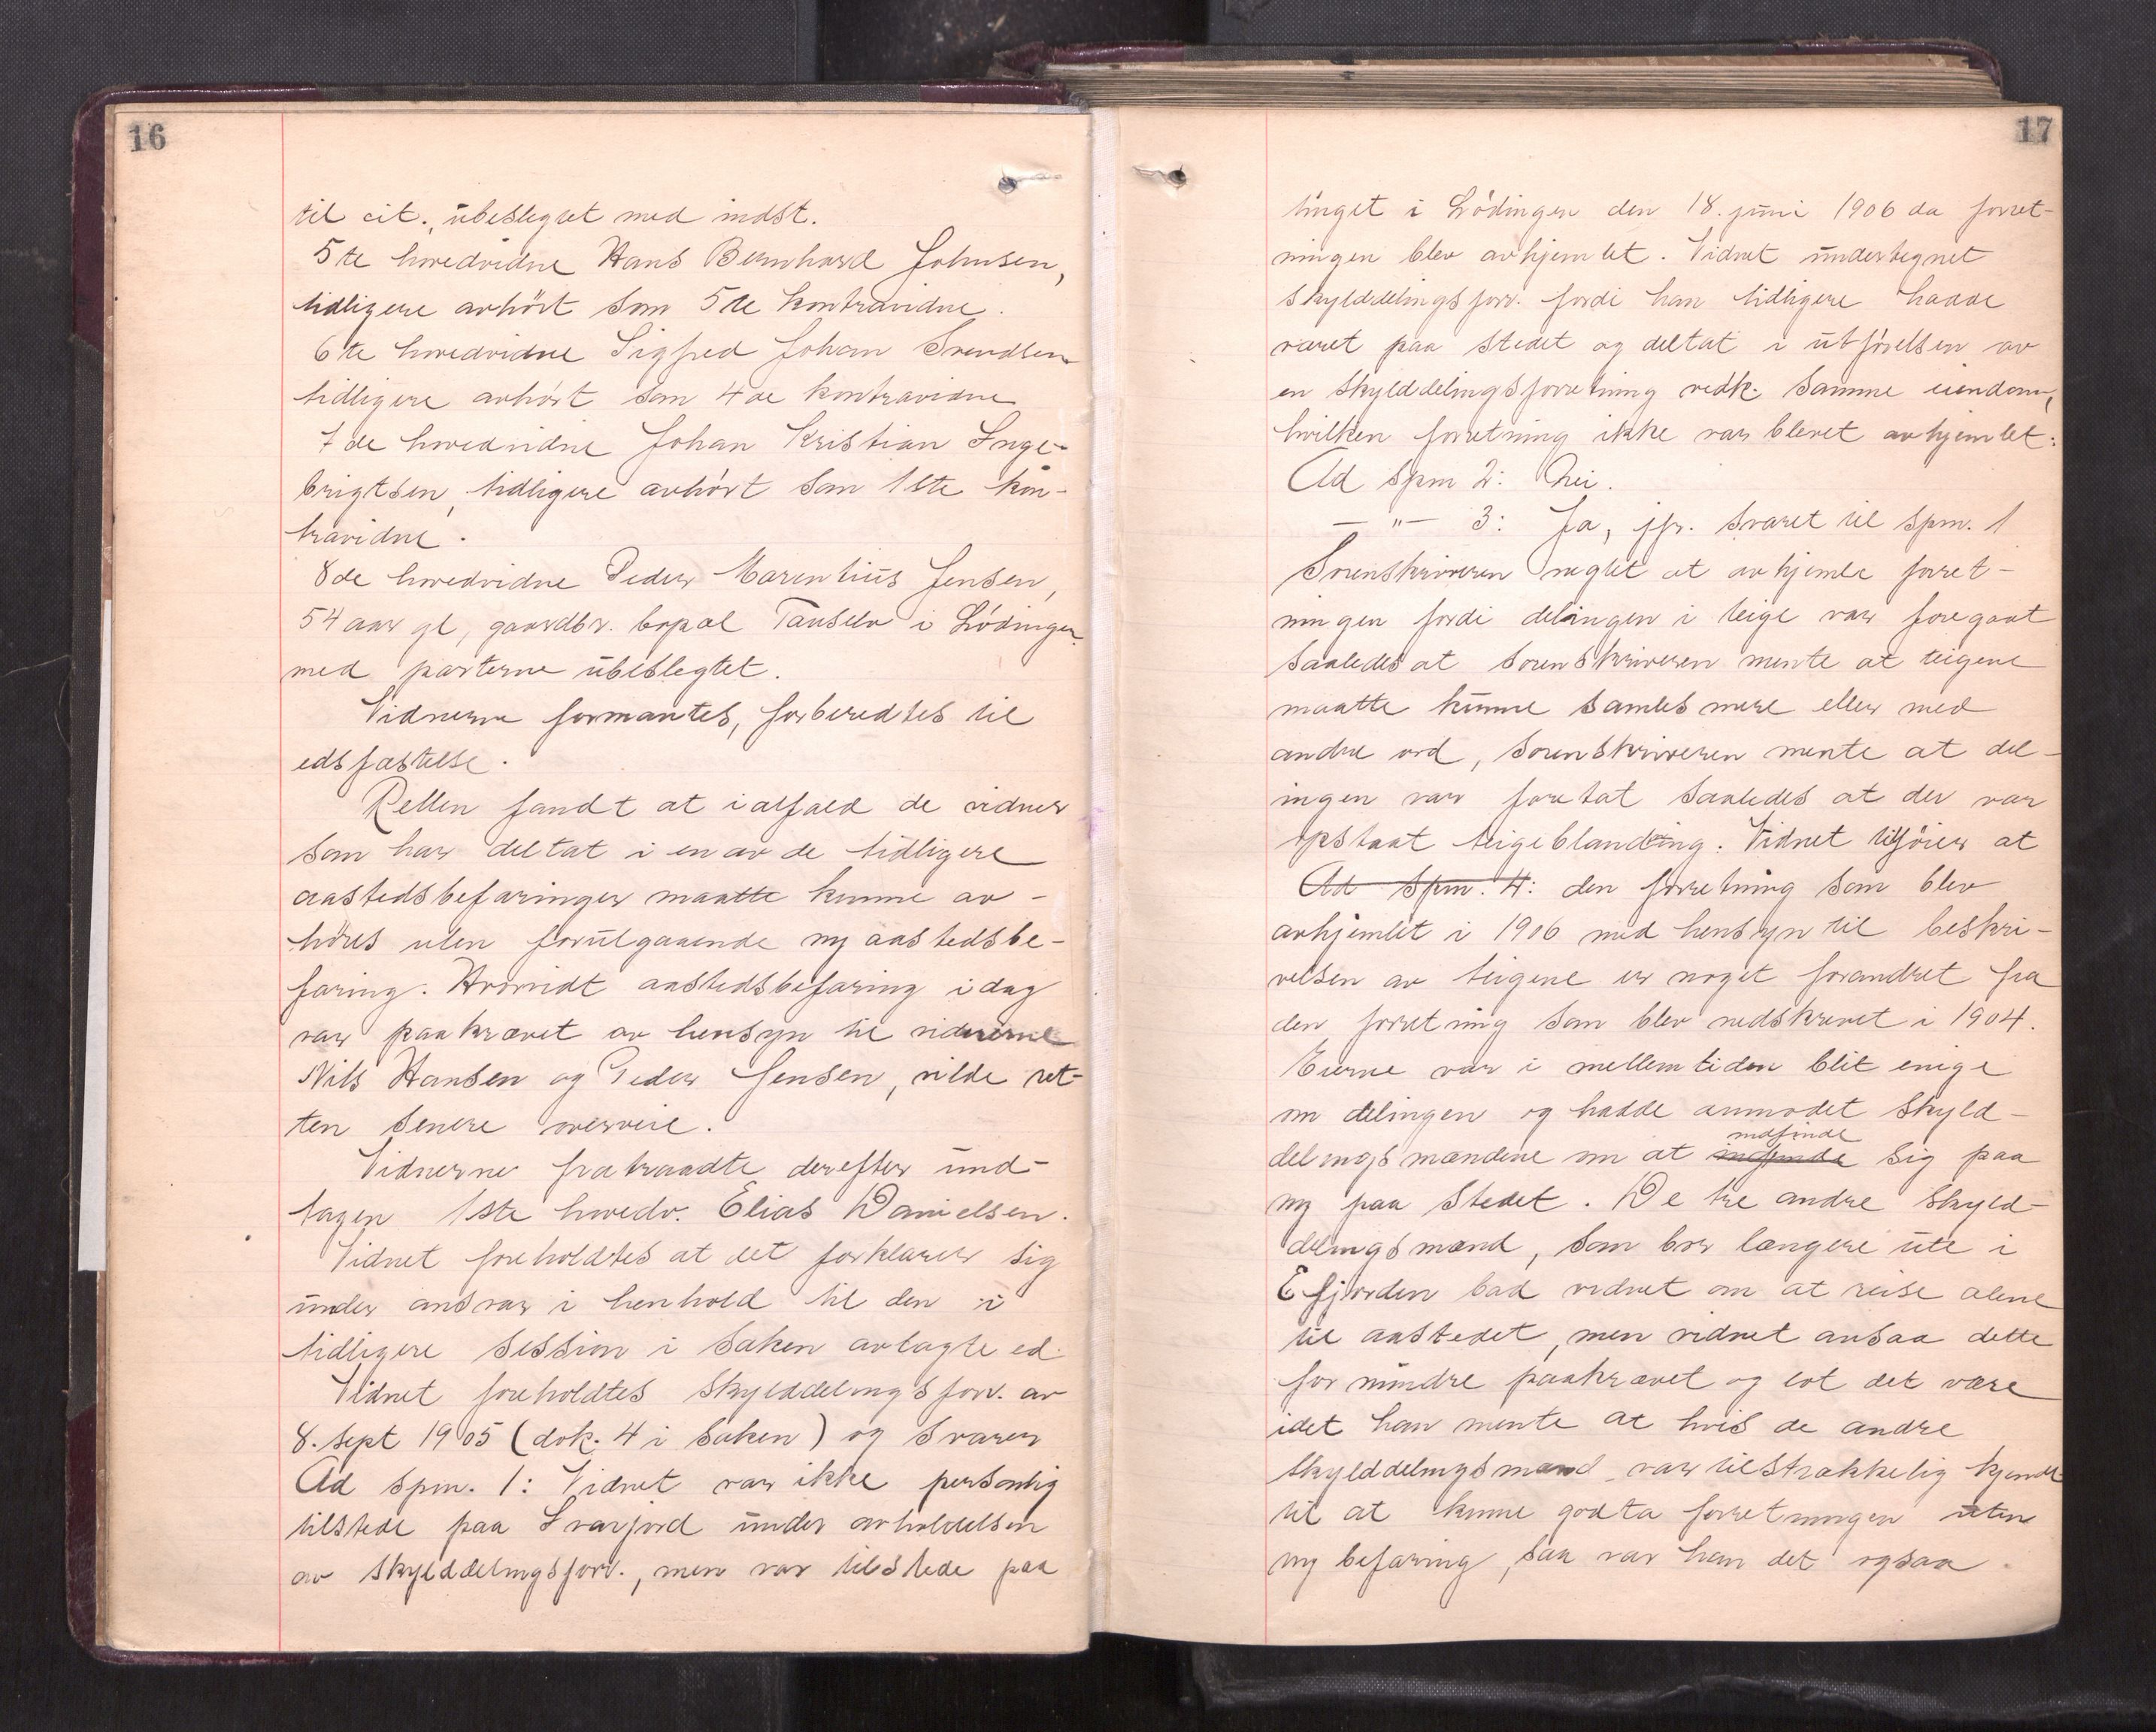 16
til cit., ubeslegtet med indst.
5te hovedvidne Hans Bernhard Johnsen,
tidligere avhørt som 5te kontravidne.
6te hovedvidne Sigfred Johan Svendsen
tidligere avhørt som 4de kontravidne
7de hovedvidne Johan Kristian Inge-
brigtsen, tidligere avhørt som 1ste kon-
travidne.
8de hovedvidne Peder Marentius Jensen,
54 aar gl, gaardbr. bopæl Tanselv i Lødingen
med parterne ubeslegtet.
Vidnerne formantes, forberedtes til
edsfæstelse.
Retten fandt at ialfald de vidner
som har deltat i en av de tidligere
aastedsbefaringer maatte kunne av-
høres uten forutgaaende ny aastedsbe-
faring. Hvorvidt aastedsbefaring idag
var paakrævet av hensyn til vidnerne
Nils Hansen og Peder Jensen, vilde ret-
ten senere overveie.
Vidnerne fratraadte derefter und-
tagen 1ste hovedv. Elias Danielsen.
Vidnet foreholdtes at det forklarer sig
under ansvar i henhold til den i
tidligere session i saken avlagte ed.
Vidnet foreholdtes skylddelingsforr. av
8. sept 1905 (dok. 4 i saken) og svarer
Ad spm. 1: Vidnet var ikke personlig
tilstede paa Svarfjord under avholdelsen
av skylddelingsforr., men var tilstede paa
17
tinget i Lødingen den 18. juni 1906 da forret-
ningen blev avhjemlet. Vidnet undertegnet
skylddelingsforr. fordi han tidligere hadde
været paa stedet og deltat i utførelsen av
en skylddelingsforretning vedk. samme eiendom,
hvilken forretning ikke var blevet avhjemlet.
Ad spm 2: Nei.
— " — 3: Ja, jfr. svaret til spm. 1
Sorenskriveren negtet at avhjemle forret-
ningen fordi delingen i teige var foregaat
saaledes at sorenskriveren mente at teigene
maatte kunne samles mere eller med
andre ord, sorenskriveren mente at del-
ingen var foretat saaledes at der var
opstaat teigeblanding. Vidnet tilføier at
Ad spm. 4: den forretning som blev
avhjemlet i 1906 med hensyn til beskri-
velsen av teigene er noget forandret fra
den forretning som blev nedskrevet i 1904.
Eierne var i mellemtiden blit enige
om delingen og hadde anmodet skyld-
indfinde
delingsmændene om at indfinde sig paa
ny paa stedet. De tre andre skyld-
delingsmænd, som bor længere ute i
Efjorden bad vidnet om at reise alene
til aastedet, men vidnet ansaa dette
for mindre paakrævet og lot det være
idet han mente at hvis de andre
skylddelingsmænd var tilstrækkelig kjendt
til at kunne godta forretningen uten
ny befaring, saa var han det ogsaa.